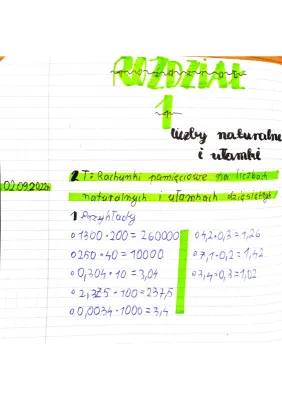 ROZDZIAŁ
1
liczby naturalne
i ułamki
02.09.2022r
2 T: Rachunki pamięciowe na liczbach
naturalnych i ułamkach dziesiętnych
1 Przykłady
1300·200 = 260000
250·40 = 10000
0,304·10 = 3,04
2,375·100 = 237,5
0,0034·1000 = 3,4
4,2·0,3 = 1,26
7,1·0,2 = 1,42
3,4·0,3 = 1,02